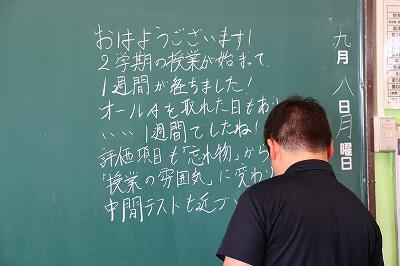 おはようございます!
2学期の授業が始まって
1週間が経ちました!
オールAを取れた日もあ
いい1週間でしたね!
評価項目も「忘れ物」から
「授業の雰囲気」に変わ
中間テストも近づ
九月八日月曜日